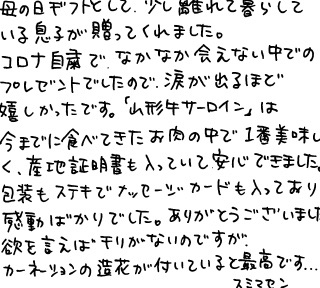 母の日ギフトとして、少し離れて暮らして
いる息子が贈ってくれました。
コロナ自粛で、なかなか会えない中での
プレゼントでしたので、涙が出るほど
嬉しかったです。「山形牛サーロイン」は
今までに食べてきたお肉の中で1番美味し
く、産地証明書も入っていて安心できました。
包装もステキでメッセージカードも入っており
感動ばかりでした。ありがとうございました
欲を言えばキリがないのですが、
カーネーションの造花が付いていると最高です…
スミマセン